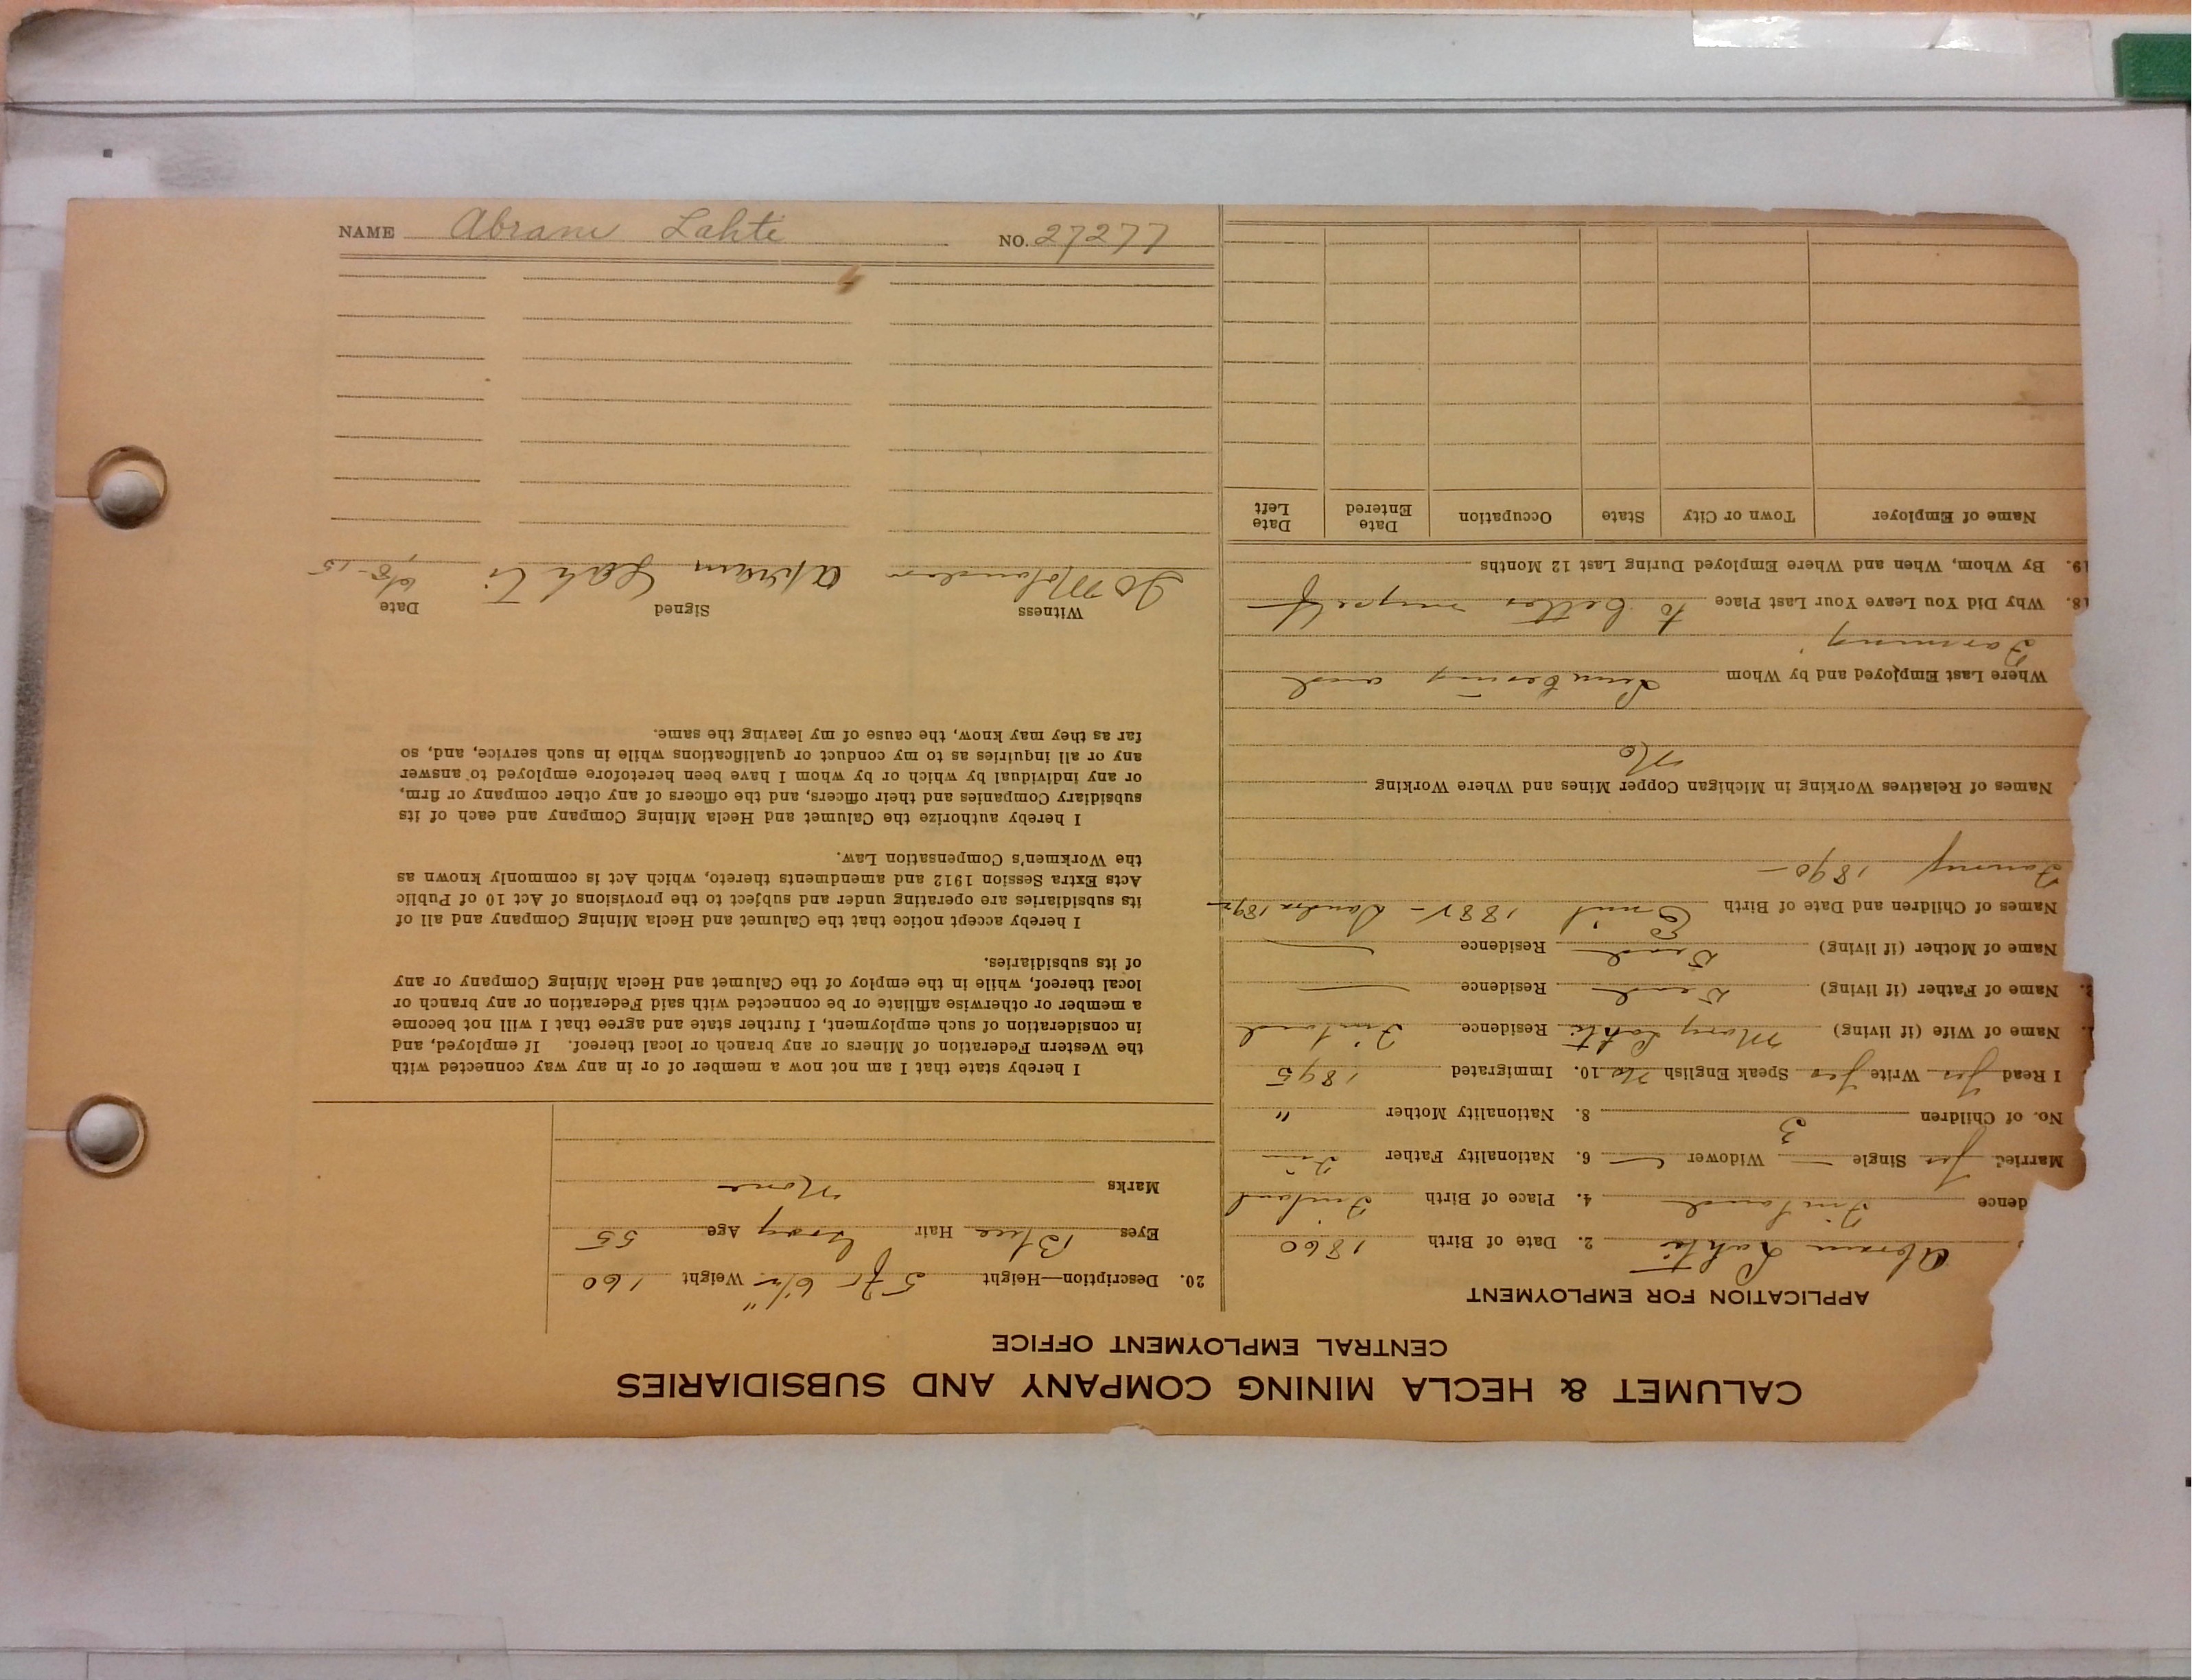 NAME Abram Lahti NO. 27277
CALUMET & HECLA MINING COMPANY AND SUBSIDIARIES
CENTRAL EMPLOYMENT OFFICE
APPLICATION FOR EMPLOYMENT
Abram Lahti 2. Date of Birth 1860
dence Finland 4. Place of Birth Finland
Married Yes Single — Widower — 6. Nationality Father Fin
No. of Children 3 8. Nationality Mother "
I Read Yes Write Yes Speak English No 10. Immigrated 1895
Name of Wife (if living) Mary Lahti Residence Finland
Name of Father (if living) Dead Residence —
Name of Mother (if living) Dead Residence —
Names of Children and Date of Birth Emil 188 – Sandra 189
Fanny 1890 –
Names of Relatives Working in Michigan Copper Mines and Where Working
No
Where Last Employed and by Whom Lumbering and
Farming
18. Why Did You Leave Your Last Place to better myself
19. By Whom, When and Where Employed During Last 12 Months
Name of Employer Town or City State Occupation Date Entered Date Left
20. Description—Height 5 ft 6½" Weight 160
Eyes Blue Hair Gray Age 55
Marks None
I hereby state that I am not now a member of or in any way connected with
the Western Federation of Miners or any branch or local thereof. If employed, and
in consideration of such employment, I further state and agree that I will not become
a member or otherwise affiliate or be connected with said Federation or any branch or
local thereof, while in the employ of the Calumet and Hecla Mining Company or any
of its subsidiaries.
I hereby accept notice that the Calumet and Hecla Mining Company and all of
its subsidiaries are operating under and subject to the provisions of Act 10 of Public
Acts Extra Session 1912 and amendments thereto, which Act is commonly known as
the Workmen's Compensation Law.
I hereby authorize the Calumet and Hecla Mining Company and each of its
subsidiary Companies and their officers, and the officers of any other company or firm,
or any individual by which or by whom I have been heretofore employed to answer
any or all inquiries as to my conduct or qualifications while in such service, and, so
far as they may know, the cause of my leaving the same.
Witness Signed Date
Molander Abram Lahti